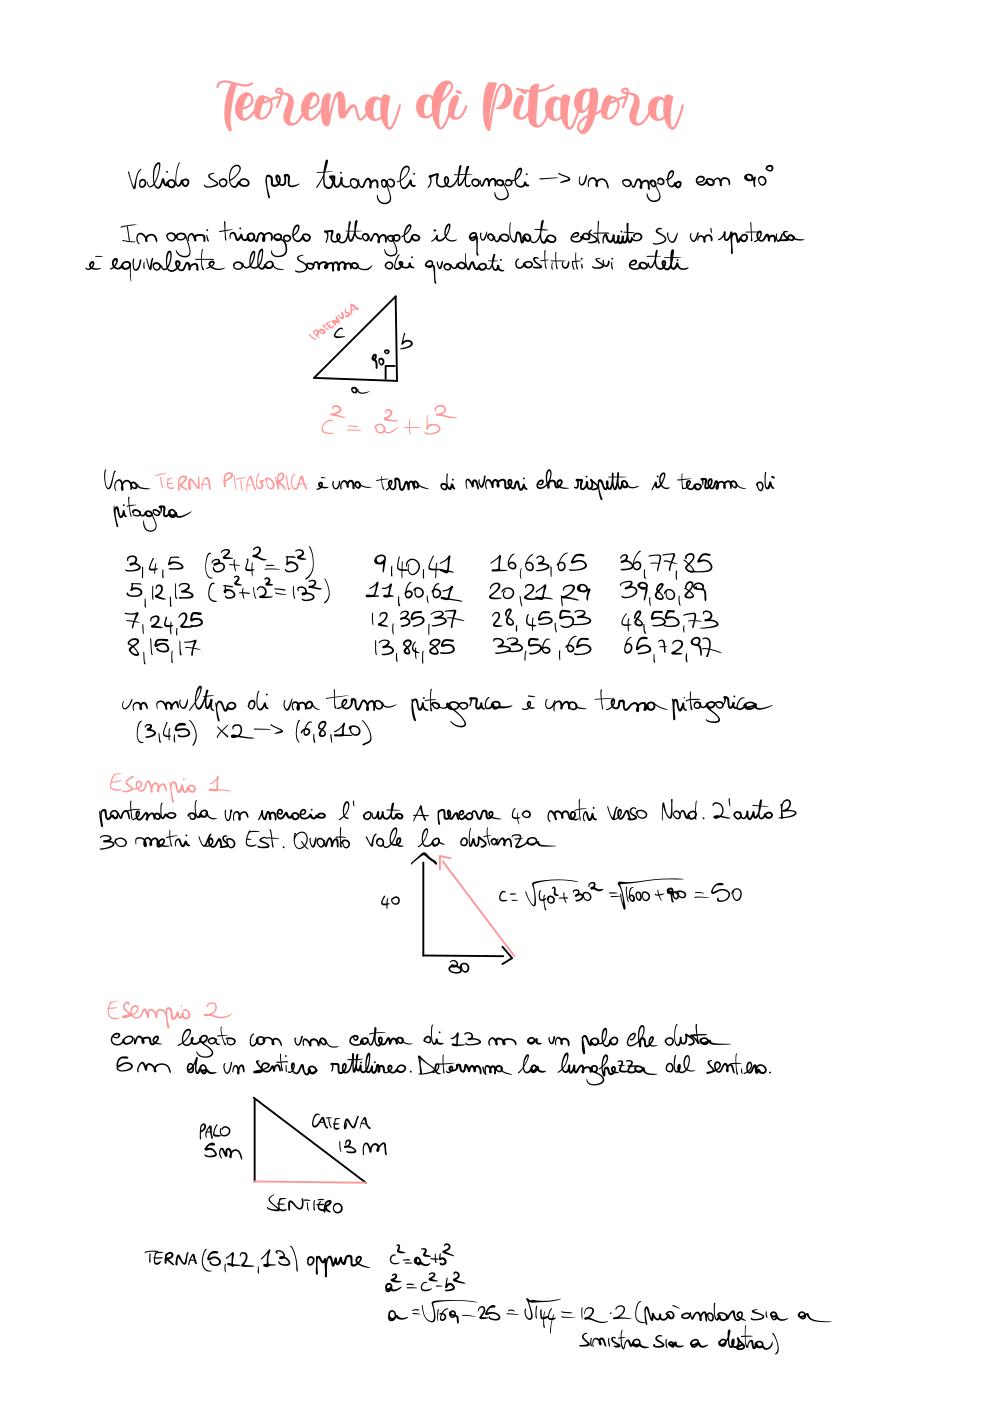 Teorema di Pitagora
Valido solo per triangoli rettangoli -> un angolo con 90°
In ogni triangolo rettangolo il quadrato costruito su un'ipotenusa
è equivalente alla somma dei quadrati costituiti sui cateti
IPOTENUSA
c
b
90°
a
c² = a² + b²
Una TERNA PITAGORICA è una terna di numeri che rispetta il teorema di
pitagora
3,4,5 (3²+4²=5²) 9,40,41 16,63,65 36,77,85
5,12,13 (5²+12²=13²) 11,60,61 20,21,29 39,80,89
7,24,25 12,35,37 28,45,53 48,55,73
8,15,17 13,84,85 33,56,65 65,72,97
un multipo di una terna pitagorica è una terna pitagorica
(3,4,5) ×2 -> (6,8,10)
Esempio 1
partendo da un incrocio l'auto A percorre 40 metri verso Nord. L'auto B
30 metri verso Est. Quanto vale la distanza
40
c = √40²+30² = √1600+900 = 50
30
Esempio 2
cane legato con una catena di 13 m a un palo che dista
5m da un sentiero rettilineo. Determina la lunghezza del sentiero.
PALO
5m
CATENA
13 m
SENTIERO
TERNA (5,12,13) oppure c²=a²+b²
a²=c²-b²
a = √169-25 = √144 = 12 · 2 (può andare sia a
sinistra sia a destra)